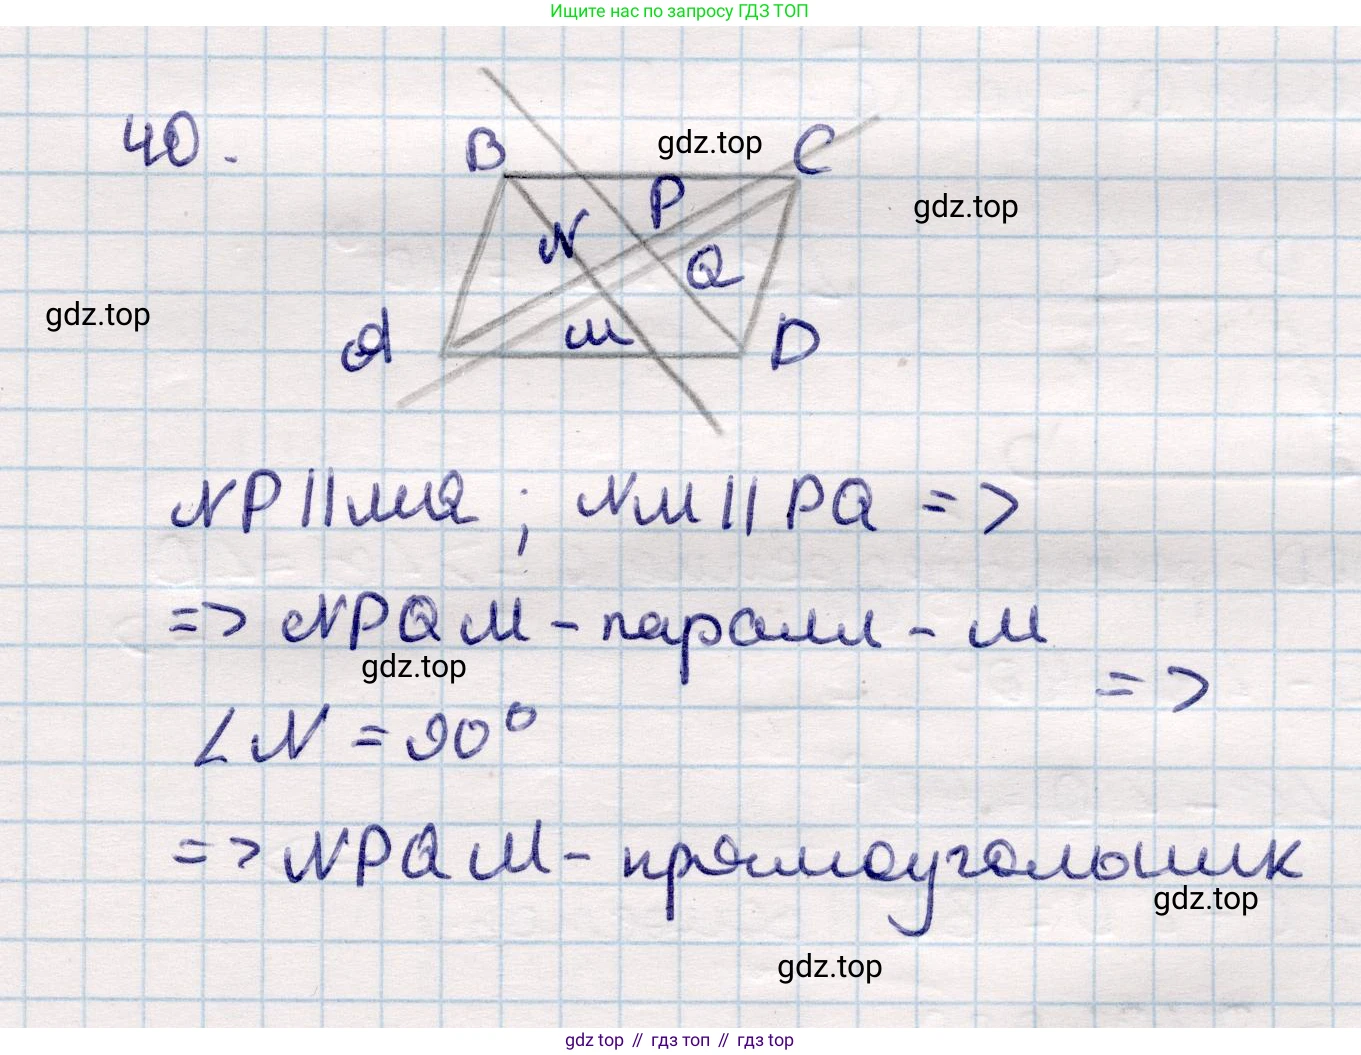 Ищите нас по запросу ГДЗ ТОП
40.
B
gdz.top
C
P
gdz.top
N
Q
gdz.top
A
M
D
NP||MQ ; NM||PQ =>
=> NPQM - паралл - м
gdz.top
=>
∠N = 90°
=> NPQM - прямоугольник
gdz.top
gdz.top
gdz top // гдз топ // gdz top